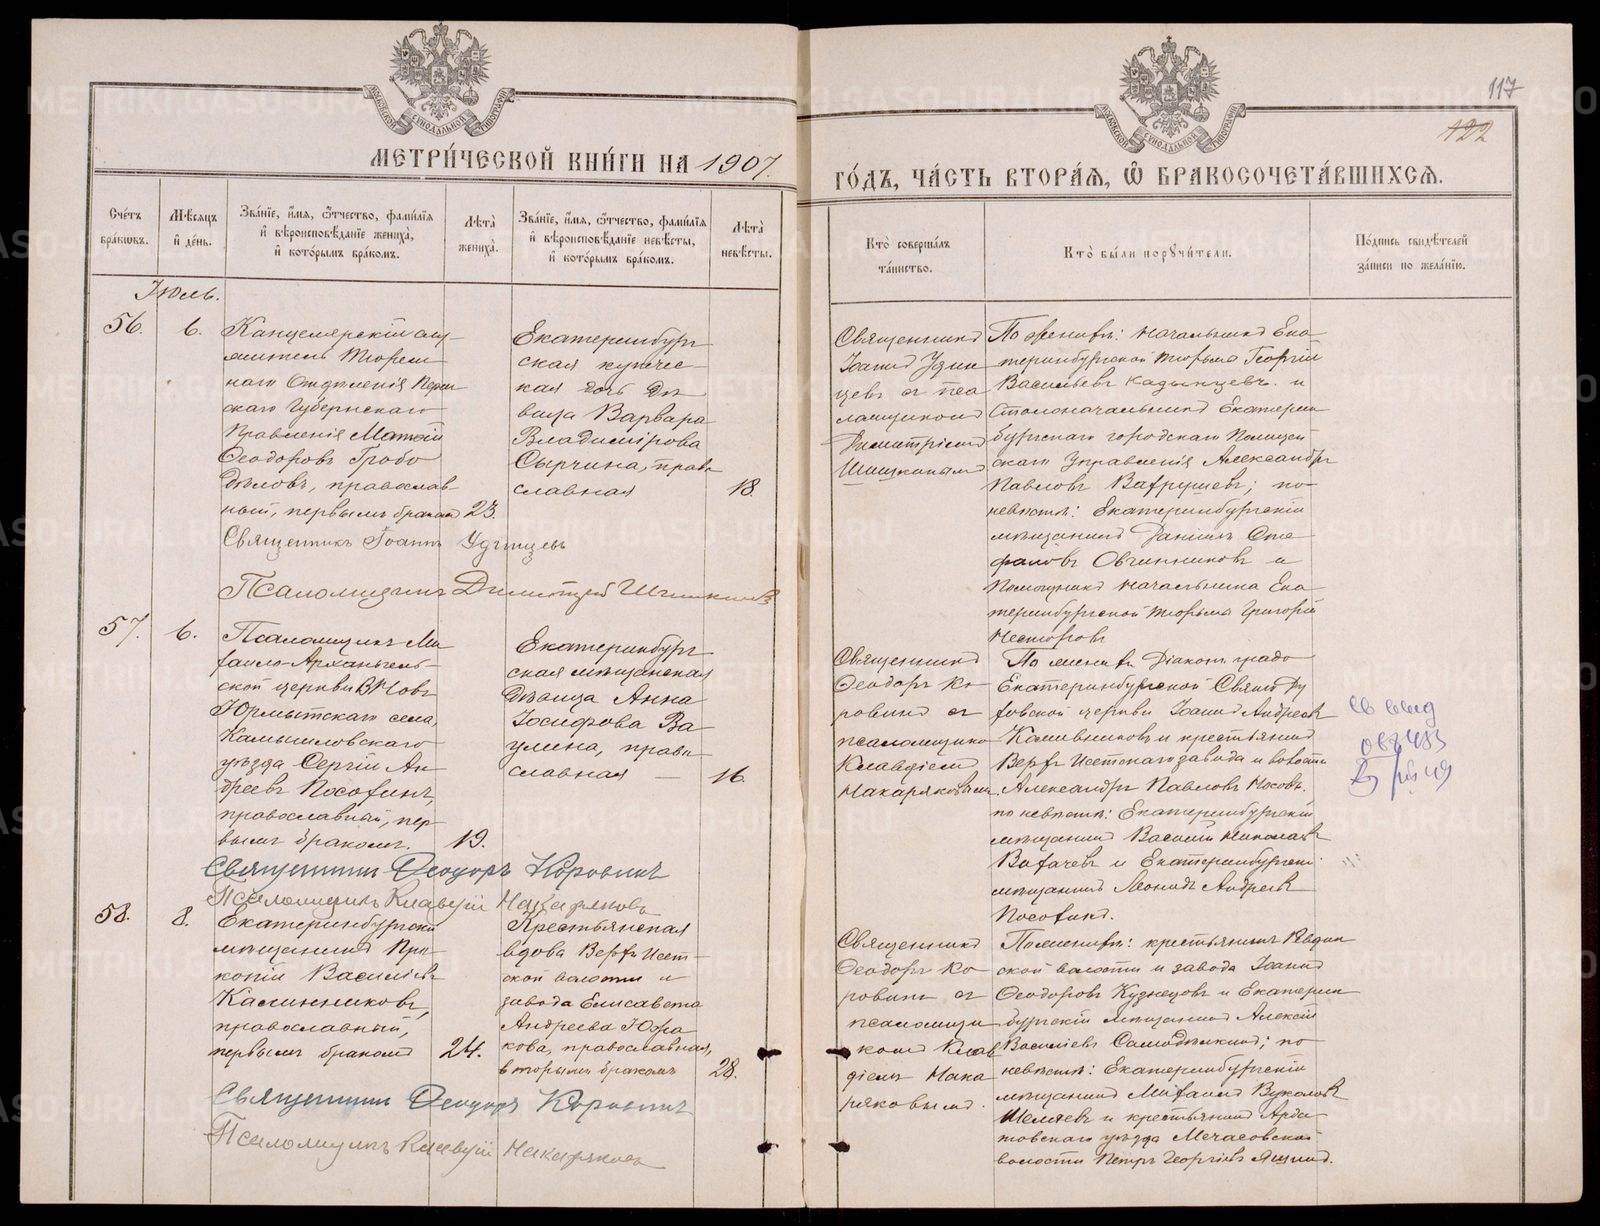 117
122
МЕТРИ́ЧЕСКОЙ КНИ́ГИ НА 1907
ГО́ДЪ, ЧА́СТЬ ВТОРА́Я, Ѡ БРАКОСОЧЕТА́ВШИХСЯ.
Сче́тъ бра́кѡвъ.
Мѣ́сяцъ и де́нь.
Зва́нїе, и́мя, ѻ́тчество, фами́лїя и вѣроисповѣ́данїе жениха̀, и кото́рымъ бра́комъ.
Лѣта̀ жениха̀.
Зва́нїе, и́мя, ѻ́тчество, фами́лїя и вѣроисповѣ́данїе невѣ́сты, и кото́рымъ бра́комъ.
Лѣта̀ невѣ́сты.
Кто̀ соверша́лъ та́инство.
Кто̀ бы́ли порꙋчи́тели.
По́дпись свидѣ́телей за́писи по жела́нїю.
Іюль.
56.
6.
Канцелярскій слу-
житель Тюрем
наго Отдѣленія Перм
скаго Губернскаго
Правленія Матѳій
Ѳеодоровъ Гробо
дѣловъ, православ-
ный, первымъ бракомъ
23.
Екатеринбург
ская купече-
ская дочь дѣ
вица Варвара
Владимірова
Сырчина, право
славная
18.
Священникъ
Іоаннъ Удин
цевъ съ пса
ломщикомъ
Димитріемъ
Шишкинымъ
По женихѣ: Начальникъ Ека
теринбургской тюрьмы Георгій
Васильевъ Кадынцевъ и
Столоначальникъ Екатерин
бургскаго городскаго Полицей
скаго Управленія Александръ
Павловъ Вахрушевъ; по
невѣстѣ: Екатеринбургскій
мѣщанинъ Даніилъ Сте
фановъ Овчинниковъ и
Помощникъ Начальника Ека
теринбургской тюрьмы Григорій
Несторовъ
Священникъ Іоаннъ Удинцевъ
Псаломщикъ Димитрій Шишкинъ
57.
6.
Псаломщикъ Ми
хаило-Архангель-
ской церкви
Юрмытскаго села,
Камышловскаго
уѣзда Сергій Ан
дреевъ Носохинъ,
православный, пер
вымъ бракомъ.
19.
Екатеринбург
ская мѣщанская
дѣвица Анна
Іосифова Ва
улина, право
славная —
16.
Священникъ
Ѳеодоръ Ко
ровинъ съ
псаломщико
Клавдіемъ
Макаряковымъ
По женихѣ: Діаконъ градо
Екатеринбургской Свято Ду
ховской церкви Іоаннъ Андреевъ
Калинниковъ и крестьянинъ
Верхъ Исетскаго завода и волости
Александръ Павловъ Носовъ.
по невѣстѣ: Екатеринбургскій
мѣщанинъ Василій Николаевъ
Екатеринбургскій
мѣщанинъ Леонидъ Андреевъ
Носохинъ.
Священникъ Ѳеодоръ Коровинъ
Псаломщикъ Клавдій Макаряковъ
58.
8.
Екатеринбургскій
мѣщанинъ Про
копій Василіевъ
Калинниковъ,
православный,
первымъ бракомъ
24.
Крестьянская
вдова Верхъ Исет-
ской волости и
завода Елисавета
Андреева Южа
кова, православная,
вторымъ бракомъ
28.
Священникъ
Ѳеодоръ Ко
ровинъ съ
псаломщи
комъ Клав
діемъ Мака
ряковымъ.
По женихѣ: крестьянинъ Ревдин
ской волости и завода Іоаннъ
Ѳеодоровъ Кузнецовъ и Екатерин
бургскій мѣщанинъ Алексій
Василіевъ Самодѣлкинъ; по
невѣстѣ: Екатеринбургскій
мѣщанинъ Михаилъ Вуколовъ
Шеляевъ и крестьянинъ Арда
товскаго уѣзда Мечасовской
волости Петръ Георгіевъ Ящинъ.
Священникъ Ѳеодоръ Коровинъ
Псаломщикъ Клавдій Макаряковъ